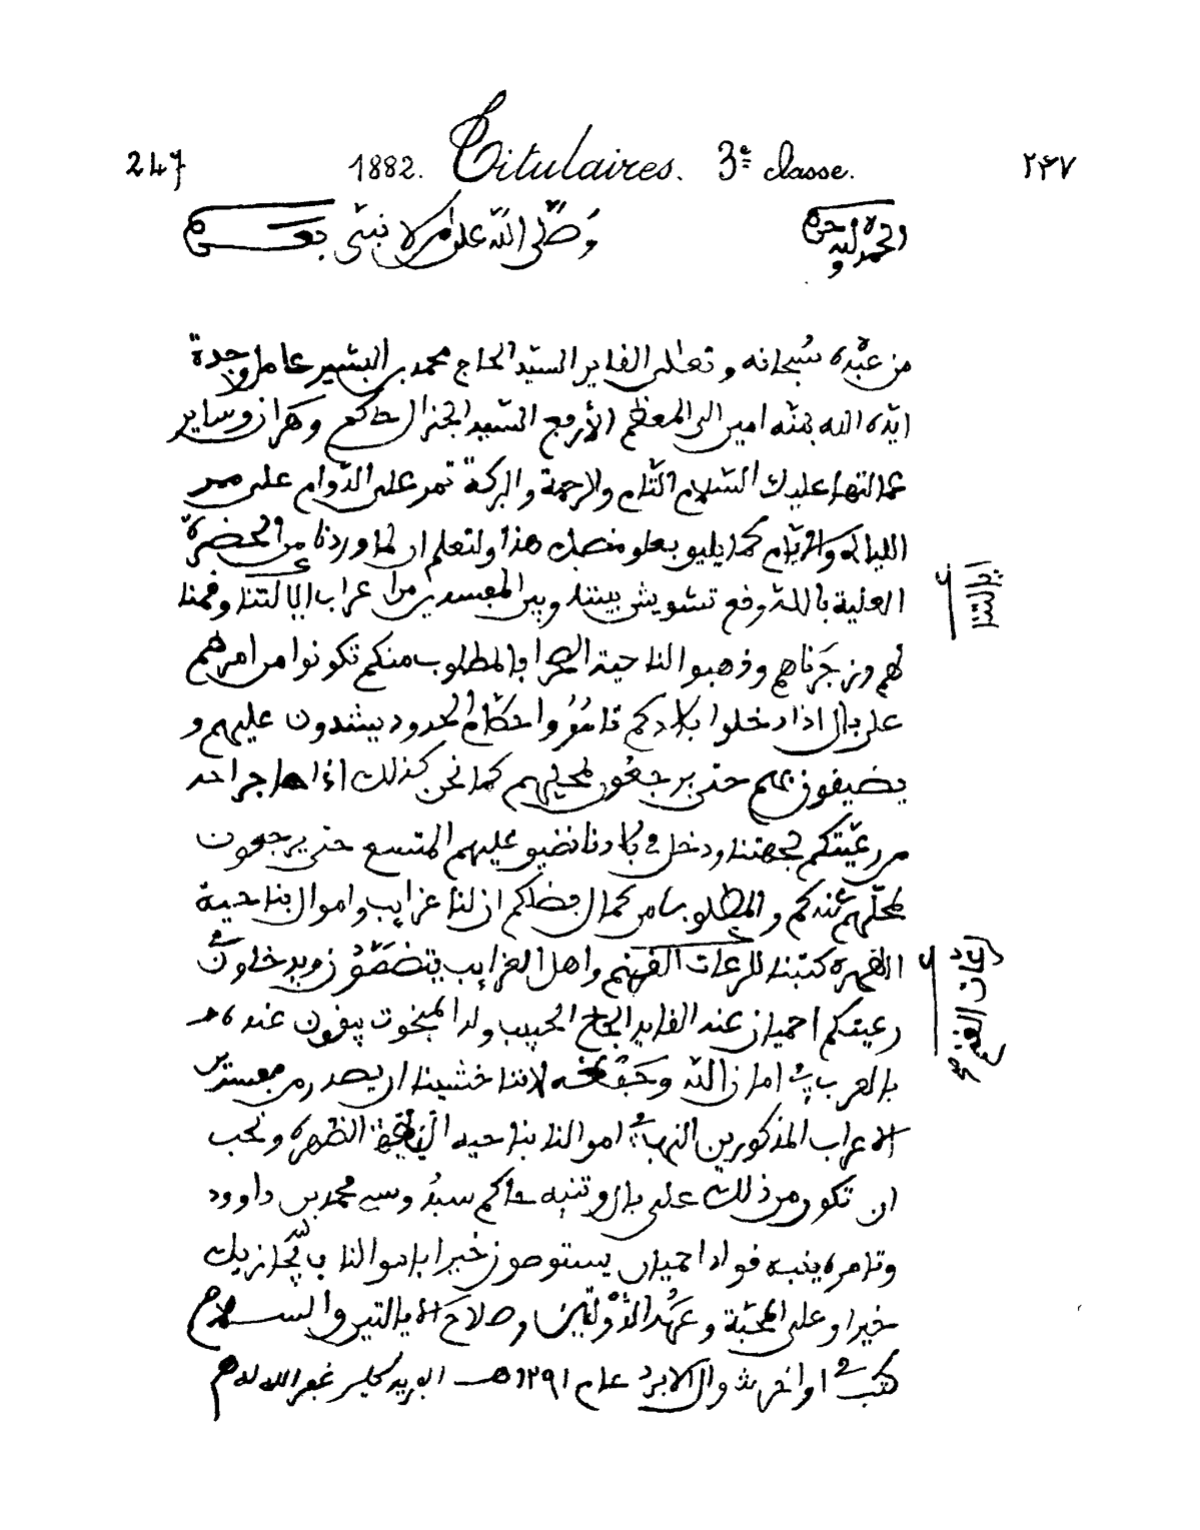 247 1882. Titulaires. 3e classe. ٢٤٧
الحمد لله وحده وصلى الله على من لا نبي بعده
من عبده سبحانه وتعلى القايد السيد الحاج محمد بن البشير عامل وجدة
ايده الله بمنه امين الى المعظم الأرفع السيد الجنرال حاكم وهران وساير
عمالتها عليك السلام التام والرحمة والبركة تمر على الدوام على ممر
الليالي والايام كما يليق بعلو منصبك هذا ولتعلم ان لما وردنا من الحضرة
العلية بالله وقع تشويش بيننا وبين المفسدين من اعراب إيالتنا وقمنا
إيالتنا
لهم وزجرناهم وذهبوا الناحية الصحرا فالمطلوب منكم تكونوا من امرهم
على بال اذا دخلوا بلادكم تامُرُوا حكام الحدود يشدون عليهم و
يضيقون بهم حتى يرجعون لمحلهم كما نحن كذلك اذا هاجر احد
من رعيتكم لجهتنا ودخل في بلادنا نضيق عليهم المتسع حتى يرجعون
لمحلهم عندكم والمطلوب من كمال فضلكم ان لنا عزايب واموال بناحية
الظهرة كتبنا للرعات الغنم واهل العزايب ينتضمون ويدخلون
رعات الغنم
رعيتكم احميان عند القايد الحاج الحبيب ولد المبخوت يبقون عنده
بالقرب في امان الله وحفظه لاننا خشينا ان يصدر من مفسدين
الاعراب المذكورين النهب في اموالنا بناحية الظهرة ونحب
ان تكون من ذلك على بال وتنبه حاكم سبدُ وسي محمد بن داوود
وتامره ينبه قواد احميان يستوصون خيرا باموالنا يجازيك
خيرا وعلى المحبة وعهد الدولتين وصلاح الايالتين والسلام
كتب في اواخر شوال الابرد عام ١٢٩١هـ الفريد غفر الله له